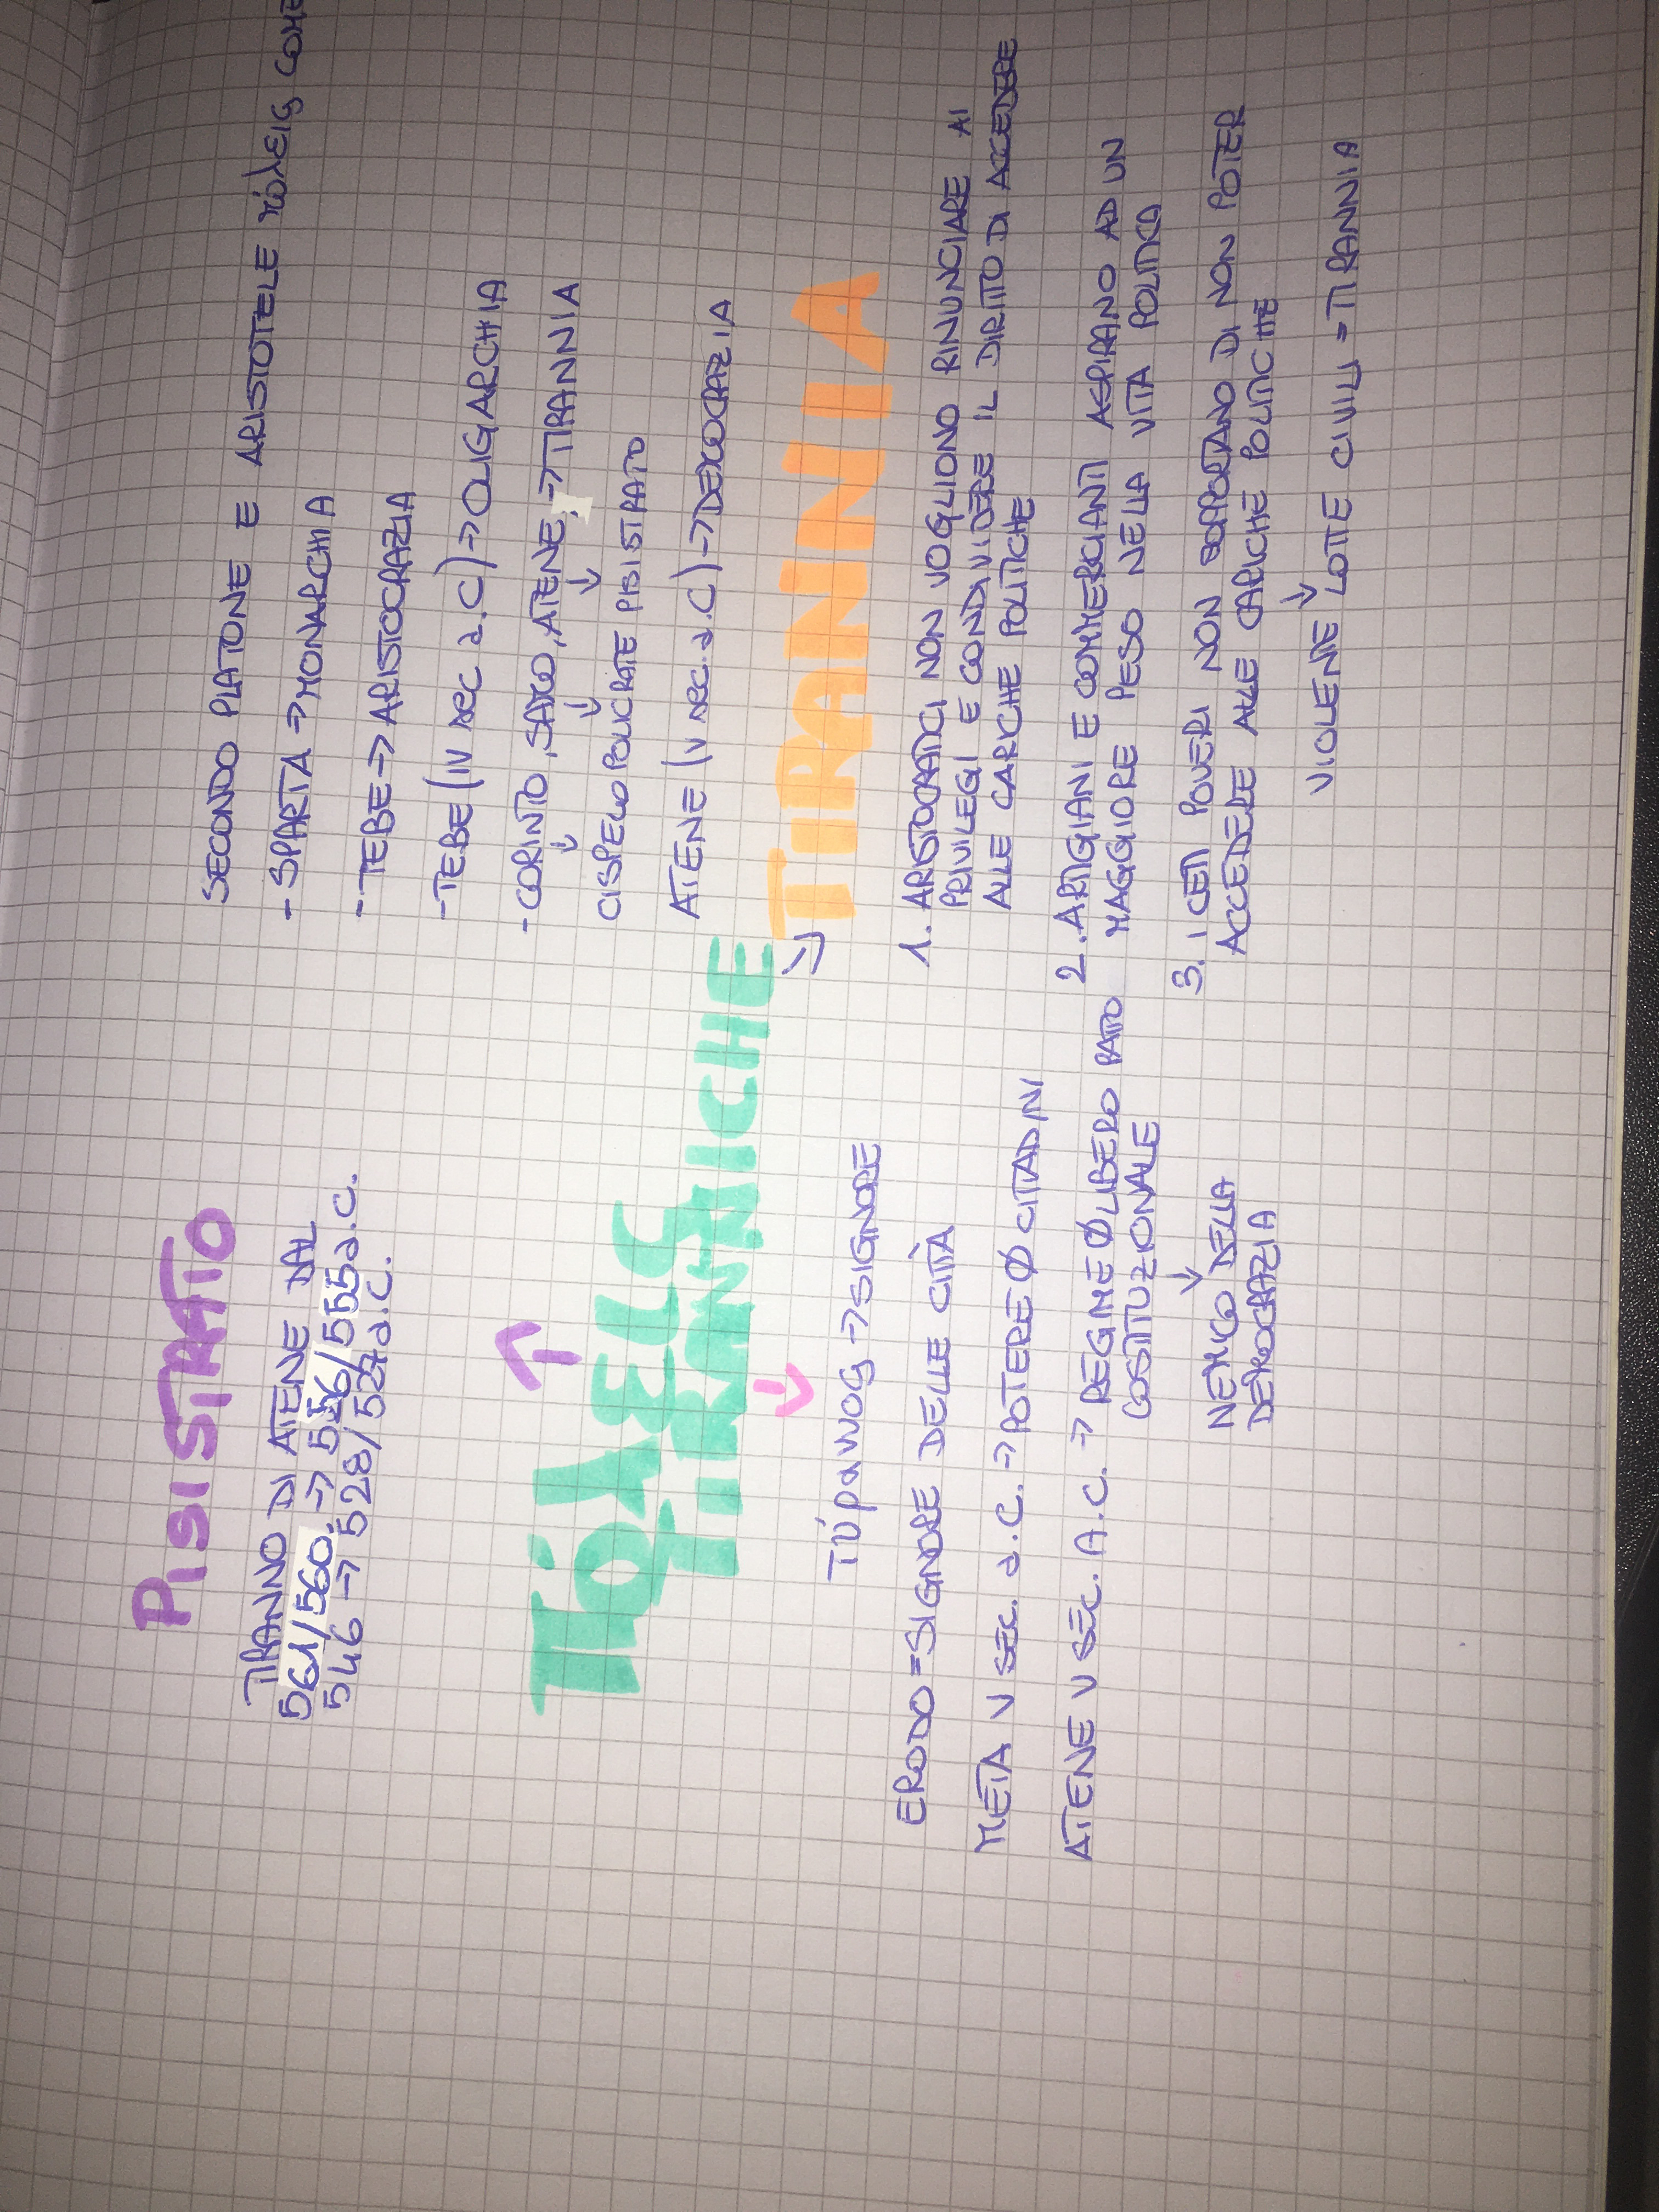 PISISTRATO
TIRANNO DI ATENE DAL
561/560 → 556/555 a.C.
546 → 528/527 a.C.
SECONDO PLATONE E ARISTOTELE πόλεις COME
- SPARTA → MONARCHIA
- TEBE → ARISTOCRAZIA
- TEBE (IV sec a.C) → OLIGARCHIA
- CORINTO, SAMO, ATENE → TIRANNIA
↓ ↓ ↓
CISPELO POLICRATE PISISTRATO
ATENE (V sec. a.C) → DEMOCRAZIA
πόλεις
TIRANNICHE
→ TIRANNIA
Τύραννος → SIGNORE
ERODO = SIGNORE DELLE CITTÀ
METÀ V SEC. a.C. → POTERE Ø CITTADINI
ATENE V SEC. A.C. → REGIME Ø LIBERO PATTO
COSTITUZIONALE
↓
NEMICO DELLA
DEMOCRAZIA
1. ARISTOCRATICI NON VOGLIONO RINUNCIARE AI
PRIVILEGI E CONDIVIDERE IL DIRITTO DI ACCEDERE
ALLE CARICHE POLITICHE
2. ARTIGIANI E COMMERCIANTI ASPIRANO AD UN
MAGGIORE PESO NELLA VITA POLITICA
3. I CETI POVERI NON SOPPORTANO DI NON POTER
ACCEDERE ALLE CARICHE POLITICHE
↓
VIOLENTE LOTTE CIVILI = TIRANNIA